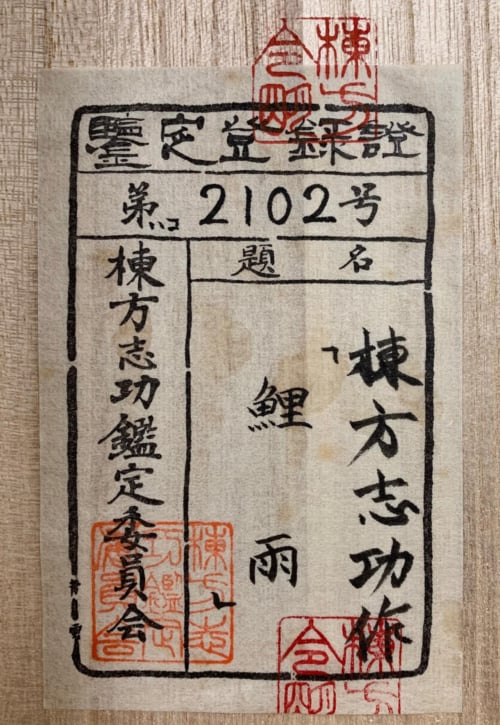 鑒定登録證
第2102号
題名
棟方志功作
「鯉雨」
棟方志功鑑定委員会
棟方志功鑑定委員会